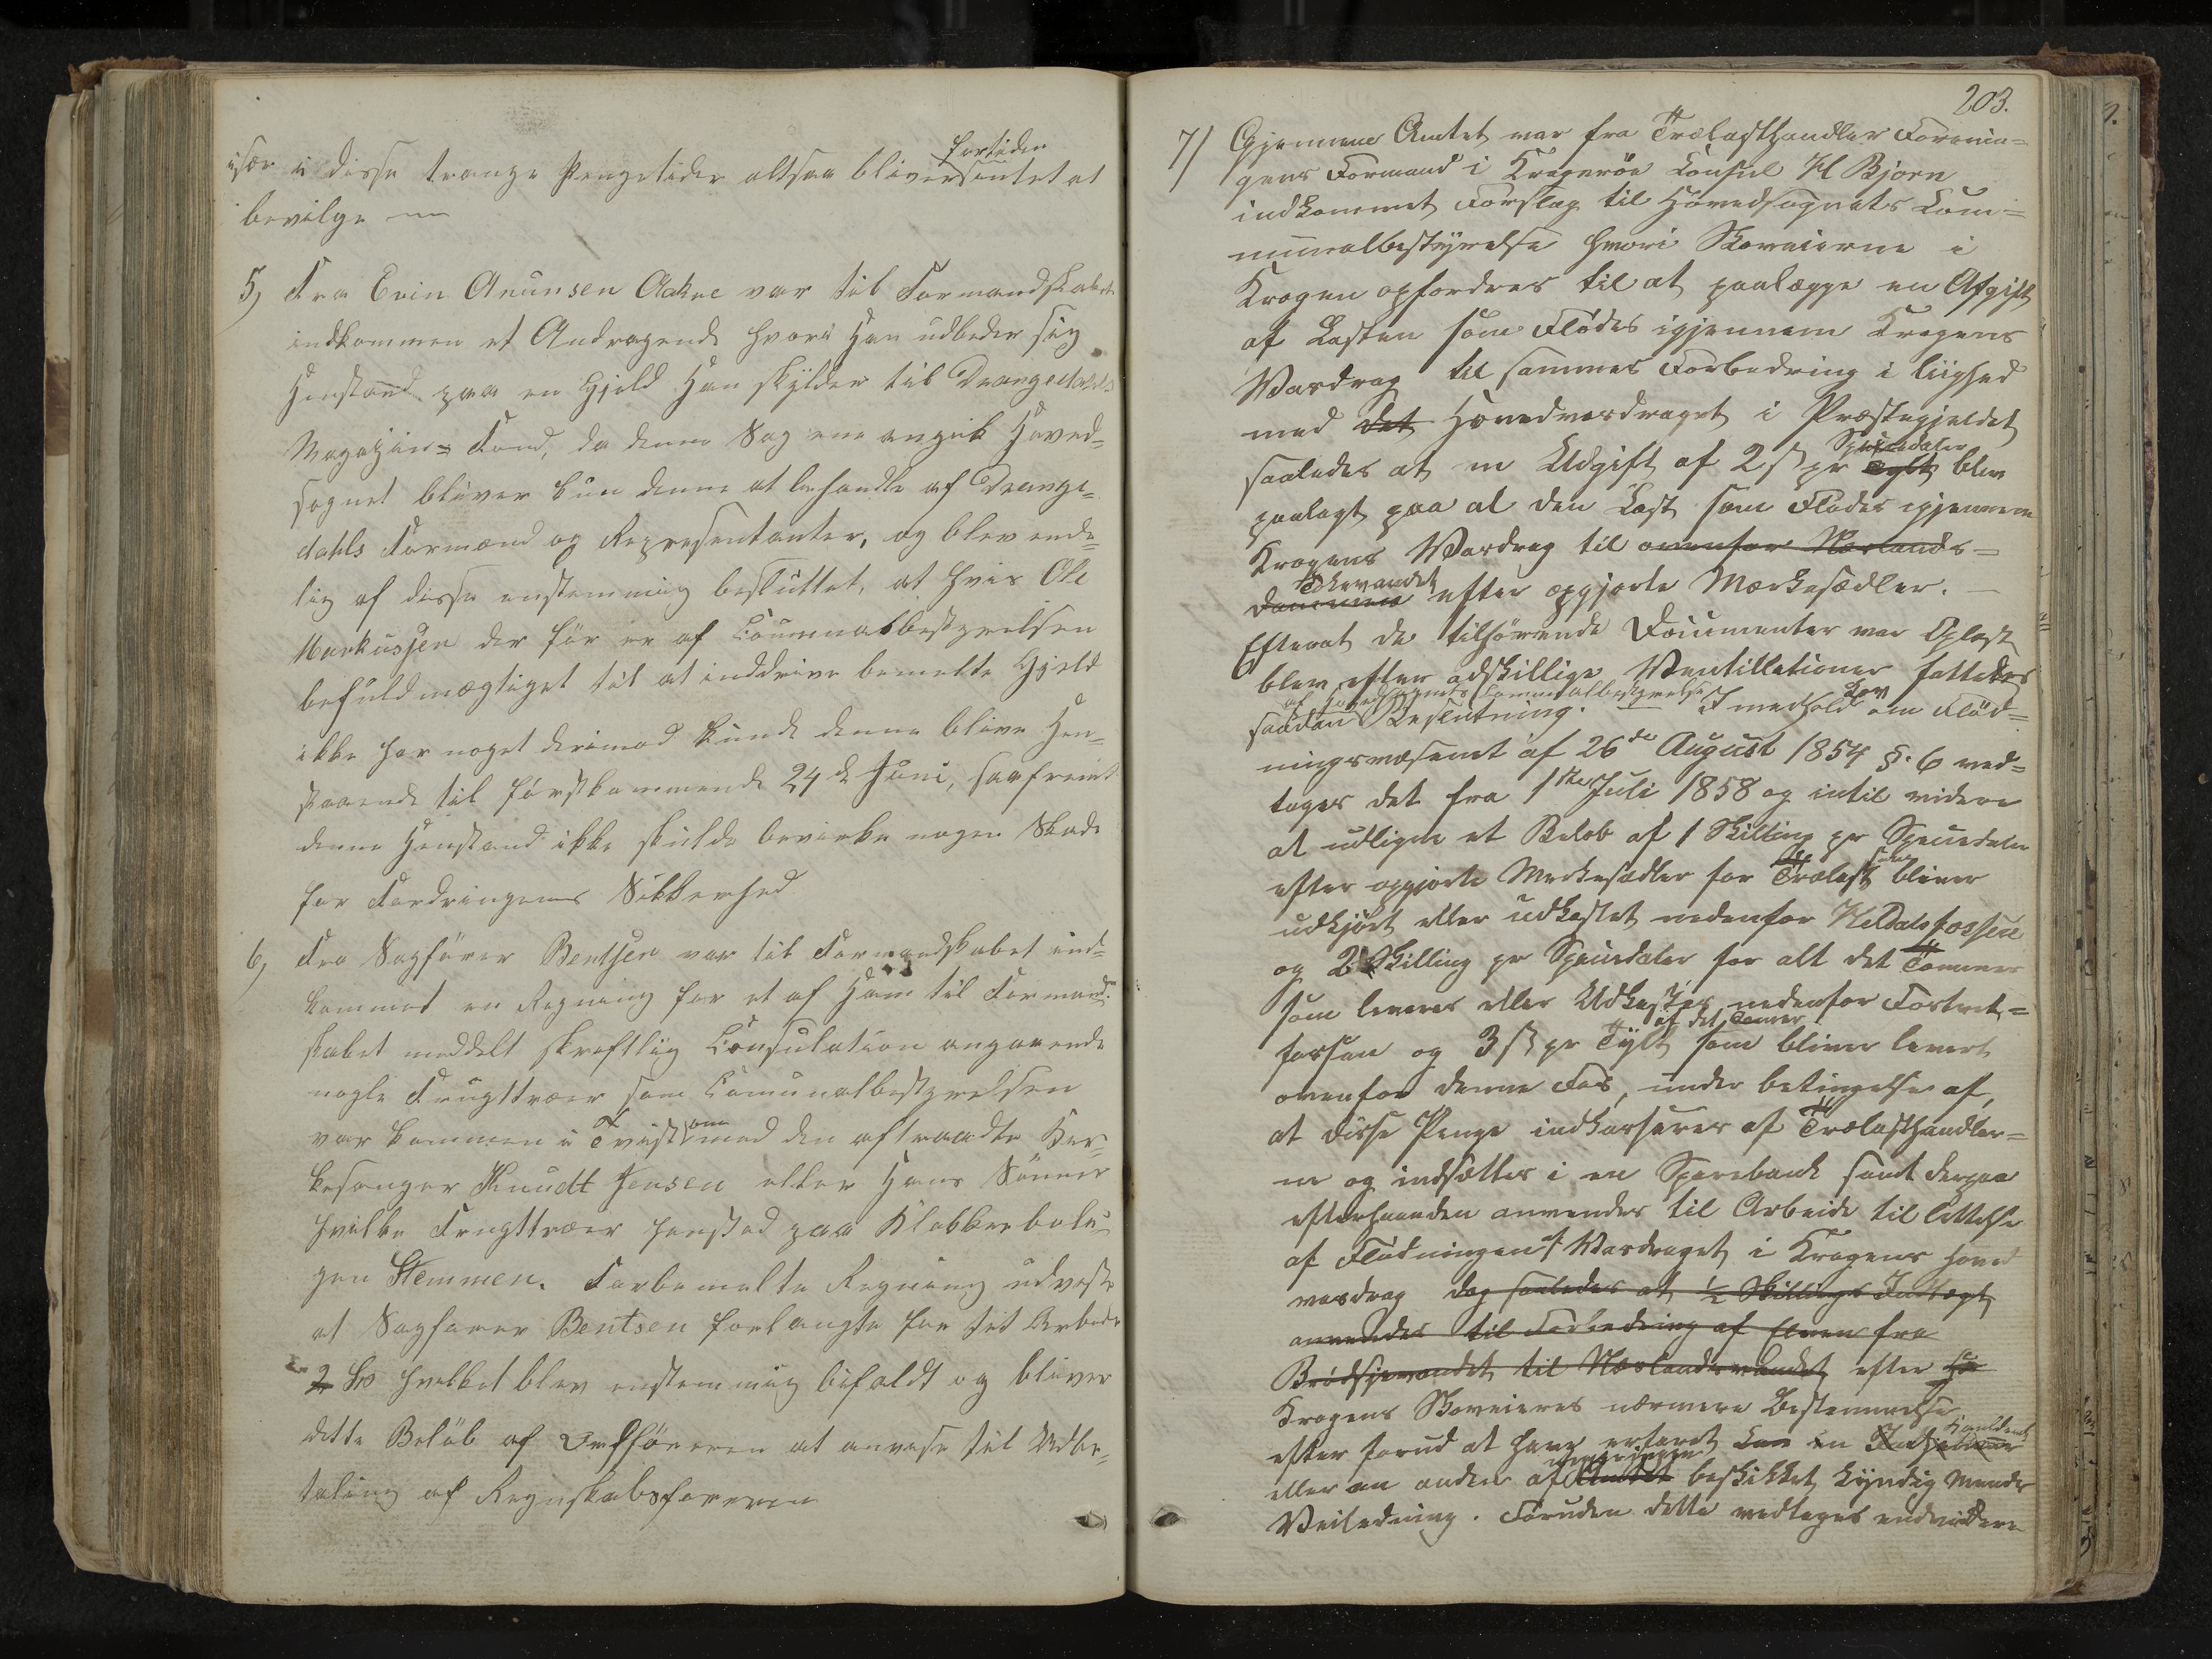 især i disse trange Pengetider altsaa bliver fortiden intet at
bevilge
5) Fra Evin Anunsen Aakre var til Formandskabet
indkommen et Andragende hvori Han udbeder sig
Henstand paa en Gjeld Han skylder til Drangedahls
Magazin-Fond, da denne Sag ene angik Hoved-
sognet bliver kun denne at behandle af Drange-
dahls Formænd og Repræsentanter, og blev ende-
lig af disse enstemmig besluttet, at hvis Ole
Markussen der før er af Communalbestyrelsen
befuldmægtiget til at inddrive bemelte Gjeld
ikke har noget derimod kunde denne blive Hen-
staaende til førstkommende 24de Juni, saafremt
denne Henstand ikke skulde bevirke nogen Skade
for Fordringens Sikkerhed
6) Fra Sagfører Bentsen var til Formandskabet ind-
kommet en Regning for et af Ham til Formand-
skabet meddelt skriftlig Consulation angaaende
nogle Frugttræer som Comunalbestyrelsen
var kommen i Tvist om med den aftraadte Kir-
kesanger Knudt Jensen eller Hans Sønner
hvilke Frugttræer henstod paa Klokkerbolig-
gen Stemmen. Forbemelte Regning udviste
at Sagfører Bentsen forlangte for sit Arbeide
2 hvilket blev enstemmig bifaldt og bliver
dette Beløb af Ordføreren at anvise til Udbe-
taling af Regnskabsføreren
203.
7) Gjennem Amtet var fra Trælasthandler Forenin-
gens Formand i Kragerøe Consul H Bjorn
indkommet Forslag til Hovedsognets Com-
munalbestyrelse hvori Skoveierne i
Krogen opfordres til at paalægge en Afgift
af Lasten som Flødes igjennem Krogens
Vasdrag til sammes Forbedring i liighed
med det Hovedvasdraget i Præstegjeldet
saaledes at en Udgift af 2 ß pr Tylt Speciedaler blev
paalagt paa al den Last som Flødes igjennem
Krogens Vasdrag til ovenfor Nærlands-
dammen Tokevandet efter opgjorte Mærkesedler. —
Efterat de tilhørende Documenter var Oplæst
blev efter adskillige Ventillationer fattedes
af Hovedsognets Communalbestyrelse
saadan Beslutning. — I medhold Lov om Flød-
ningsvæsenet af 26de August 1854 §. 6 ved-
tages det fra 1ste Juli 1858 og intil videre
at udligne et Beløb af 1 Skilling pr Speciedaler
efter opgjorte Merkesedler for Trælast som bliver
udkjørt eller udkastet nedenfor Heldalsfossen
og 2 Skilling pr Speciedaler for alt det Tømmer
som leveres eller Udkastes nedenfor Fostvet-
fossen og 3 ß pr Tylt af det Tømmer som bliver levert
ovenfor denne Fos, under betingelse af,
at disse Penge indkasseres af Trælasthandler-
ne og indsættes i en Sparebank samt derpaa
efterhaanden anvendes til Arbeide til lettelse
af Flødningen i Vasdraget i Krogens hoved
vasdrag dog saaledes at ½ Skillings Indtægt
anvendes til Forbedring af Elven fra
Brødsjøvandet til Nærlandsvandet efter
Krogens Skoveieres nærmere Bestemmelse
efter forud at have erfaret en
eller en anden af Amtet beskikket kyndig Mands
Veiledning. Foruden dette vedtages endvidere